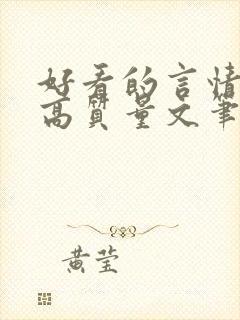 好看的言情
高质量文笔
黄莹